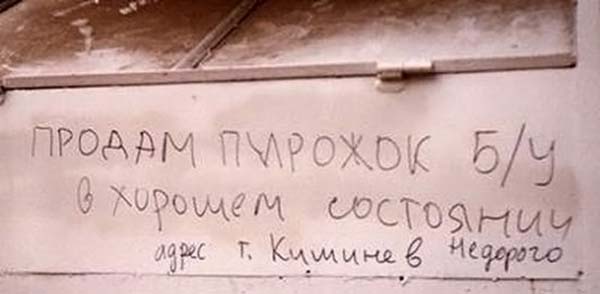 ПРОДАМ ПИРОЖОК Б/У
в хорошем состоянии
адрес г. Кишинев Недорого